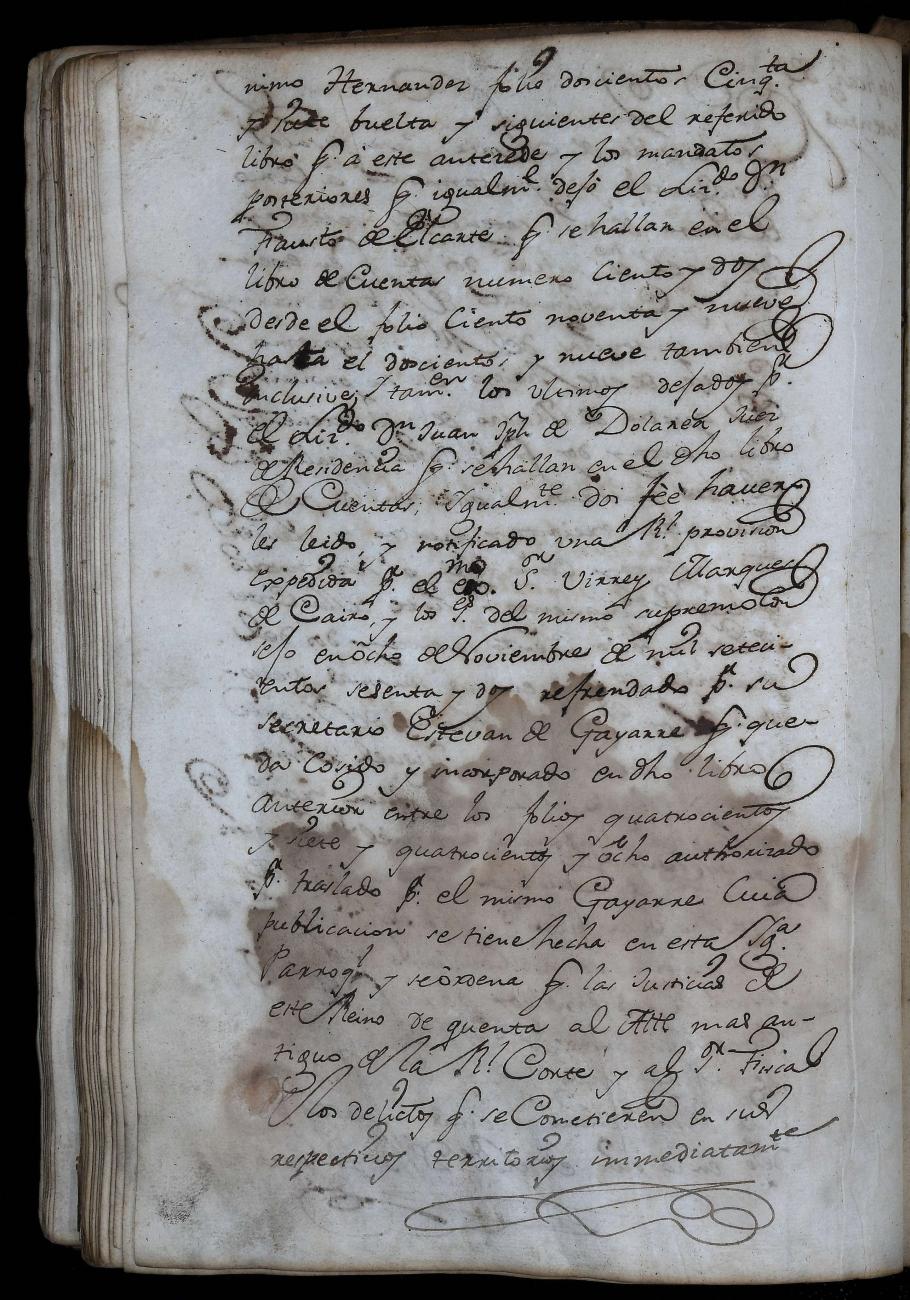 nimo Hernandez folio doscientos Cinq.ta
y siete buelta y siguientes del referido
libro q. à este anterede y los mandatos
posteriores q. igualm.te desò el Liz.do D.n
Fausto de Elcarte q. se hallan en el
libro de Cuentas numero Ciento y dos
desde el folio Ciento noventa y nueve
hasta el doscientos y nueve tambien
inclusive; y tam.en los Ultimos desados p.r
el Liz.do D.n Juan Jph de Dolarea Juez
de Residencia q. se hallan en el dho libro
de Cuentas; Igualm.te doi feè haver
les leido, y notificado una R.l provision
expedida p.r el exmo. S.r Virrey Marques
de Cairo, y los S.es del mismo supremo Con
sejo en òcho de Noviembre de mil seteci-
entos sesenta y dos refrendado p.r su
secretario Estevan de Gayarre q. que-
da Cosido y incorporado en dho libro
Anterior entre los folios quatrocientos
y siete y quatrocientos y òcho authorizado
p.r traslado p.r el mismo Gayarre Cuia
publicacion se tiene hecha en esta Ig.a
Parroq.l y se òrdena q. las Justicias de
este Reino de quenta al Alte mas an-
tiguo de la R.l Corte y al S.r Fiscal
de los delictos q. se Cometieren en sus
respectivos territorios immediatam.te